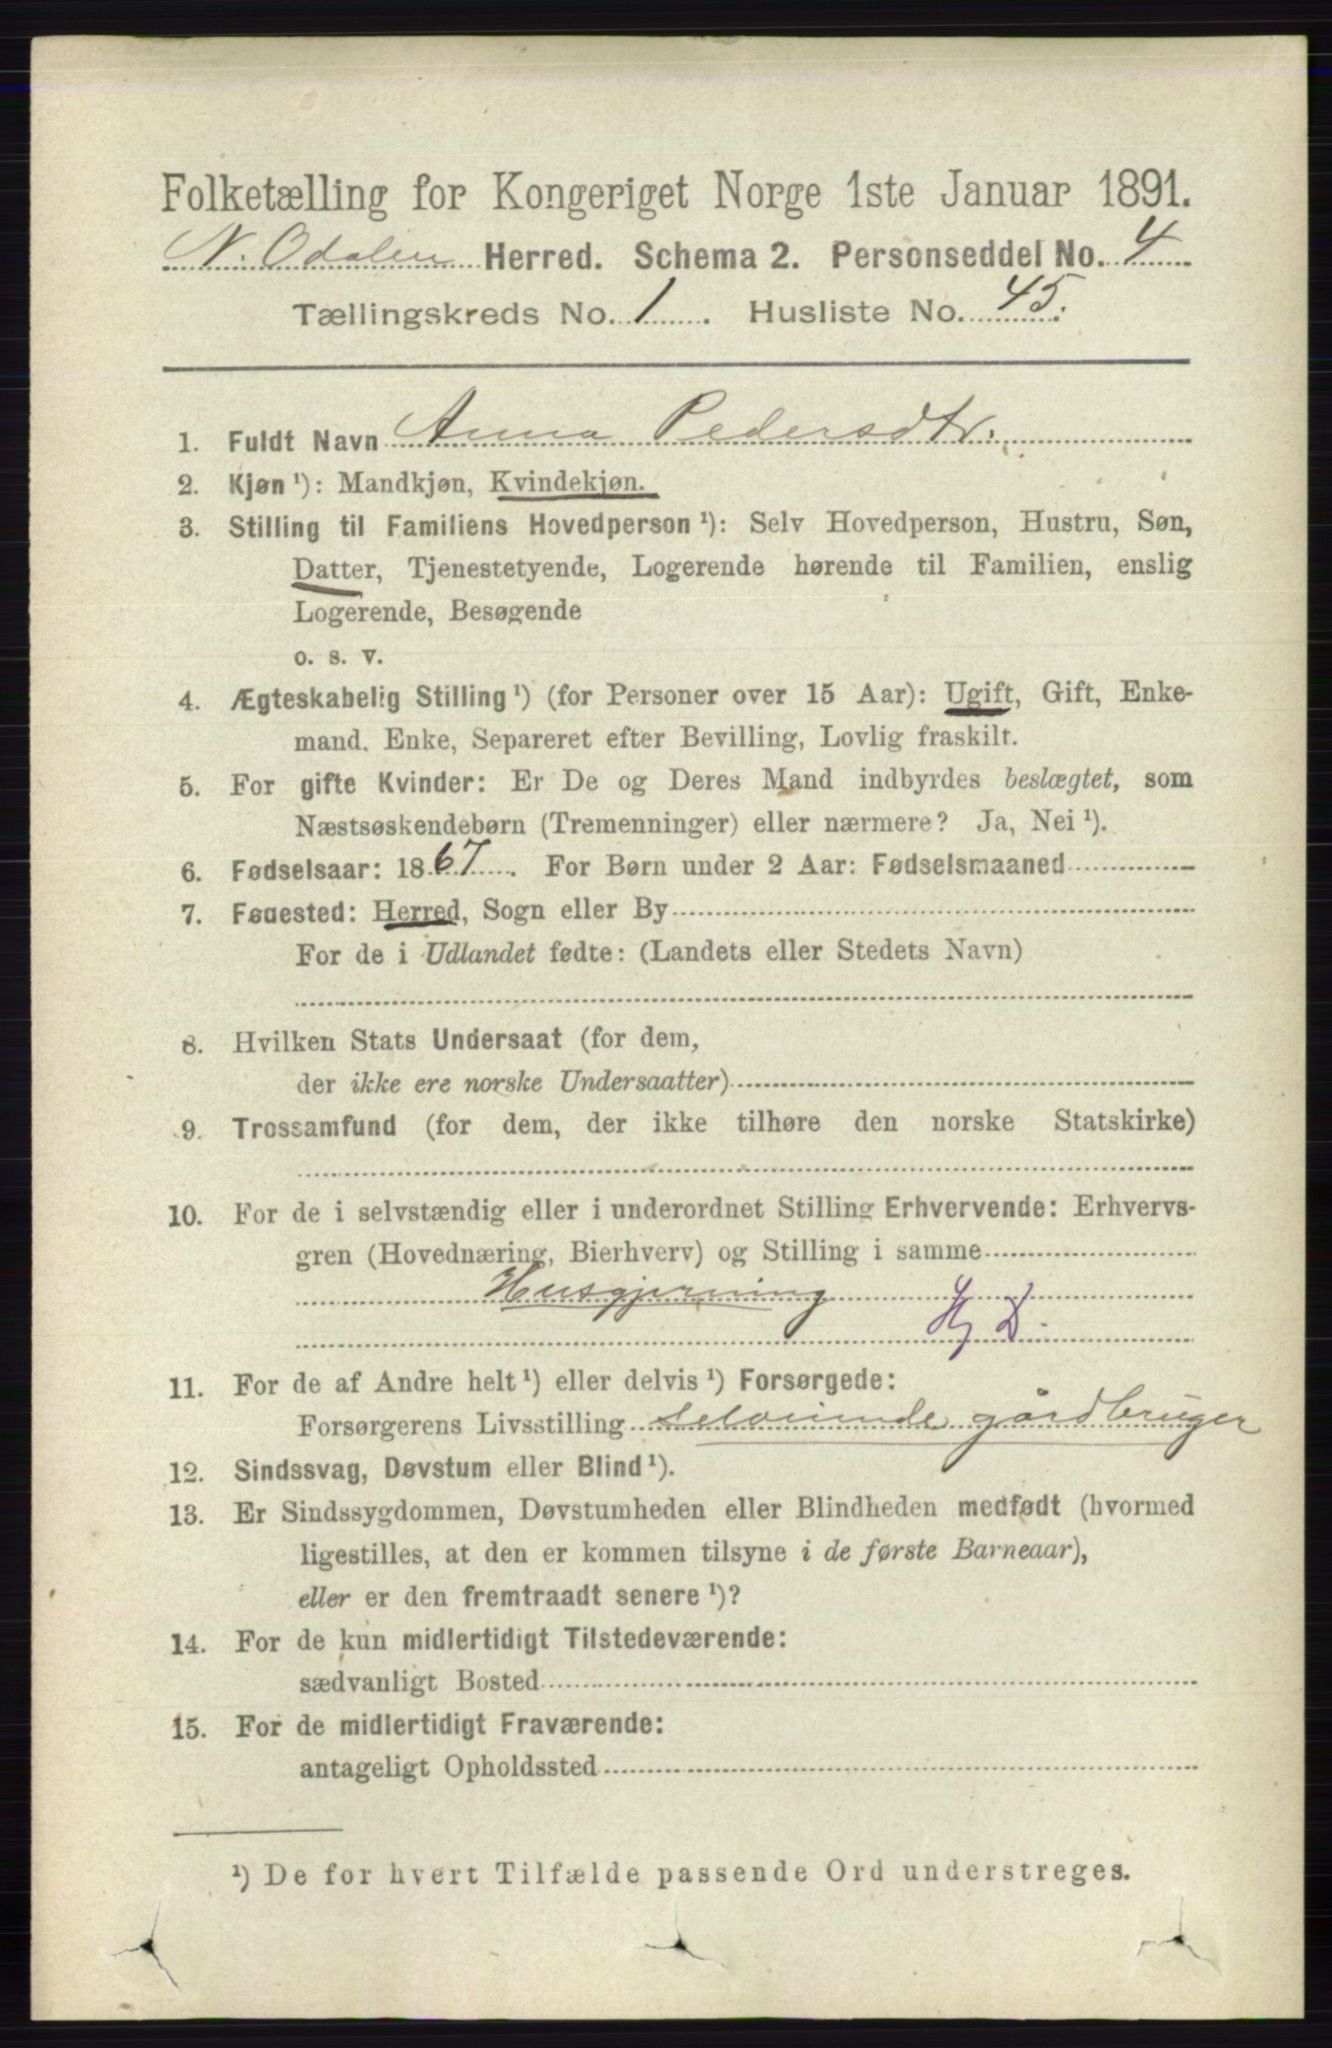 Folketælling for Kongeriget Norge 1ste Januar 1891.
N. Odalen Herred. Schema 2. Personseddel No. 4
Tællingskreds No. 1. Husliste No. 45.
1. Fuldt Navn Anna Pedersdtr.
2. Kjøn¹): Mandkjøn, Kvindekjøn.
3. Stilling til Familiens Hovedperson¹): Selv Hovedperson, Hustru, Søn,
Datter, Tjenestetyende, Logerende hørende til Familien, enslig
Logerende, Besøgende
o. s. v.
4. Ægteskabelig Stilling¹) (for Personer over 15 Aar): Ugift, Gift, Enke-
mand. Enke, Separeret efter Bevilling, Lovlig fraskilt.
5. For gifte Kvinder: Er De og Deres Mand indbyrdes beslægtet, som
Næstsøskendebørn (Tremenninger) eller nærmere? Ja, Nei¹).
6. Fødselsaar: 1867. For Børn under 2 Aar: Fødselsmaaned
7. Føuested: Herred, Sogn eller By
For de i Udlandet fødte: (Landets eller Stedets Navn)
8. Hvilken Stats Undersaat (for dem,
der ikke ere norske Undersaatter)
9. Trossamfund (for dem, der ikke tilhøre den norske Statskirke)
10. For de i selvstændig eller i underordnet Stilling Erhvervende: Erhvervs-
gren (Hovednæring, Bierhverv) og Stilling i samme
Husgjerning
Hj D.
11. For de af Andre helt¹) eller delvis¹) Forsørgede:
Forsørgerens Livsstilling selveiende gårdbruger
12. Sindssvag, Døvstum eller Blind¹).
13. Er Sindssygdommen, Døvstumheden eller Blindheden medfødt (hvormed
ligestilles, at den er kommen tilsyne i de første Barneaar),
eller er den fremtraadt senere¹)?
14. For de kun midlertidigt Tilstedeværende:
sædvanligt Bosted
15. For de midlertidigt Fraværende:
antageligt Opholdssted
¹) De for hvert Tilfælde passende Ord understreges.